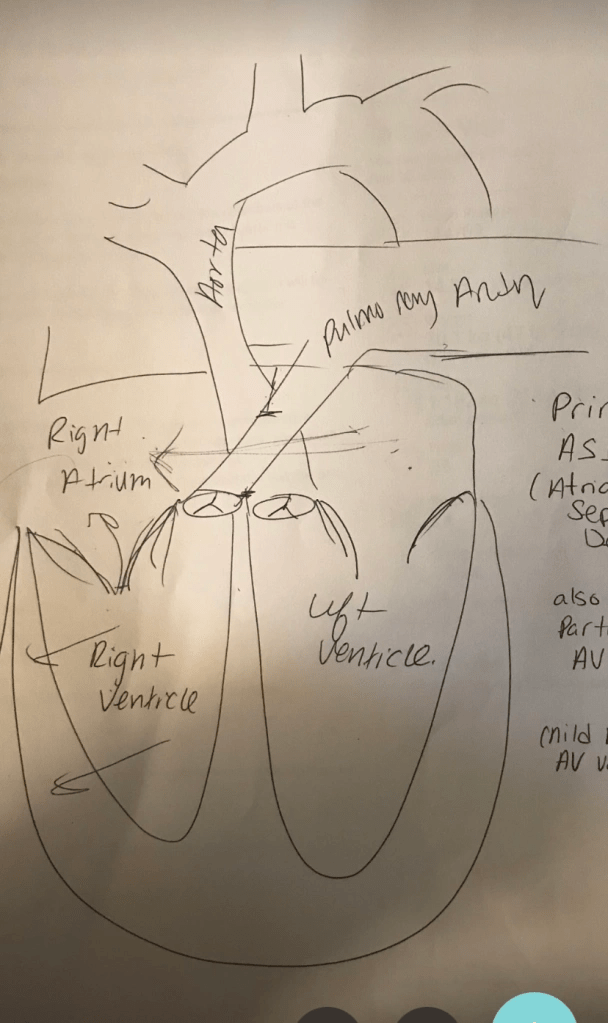 Aorta
Pulmonary Artery
Right
Atrium
Left
Ventricle.
Right
Ventricle
Prir
AS
(Atric
Sep
D
also
Part
AV
mild
AV v